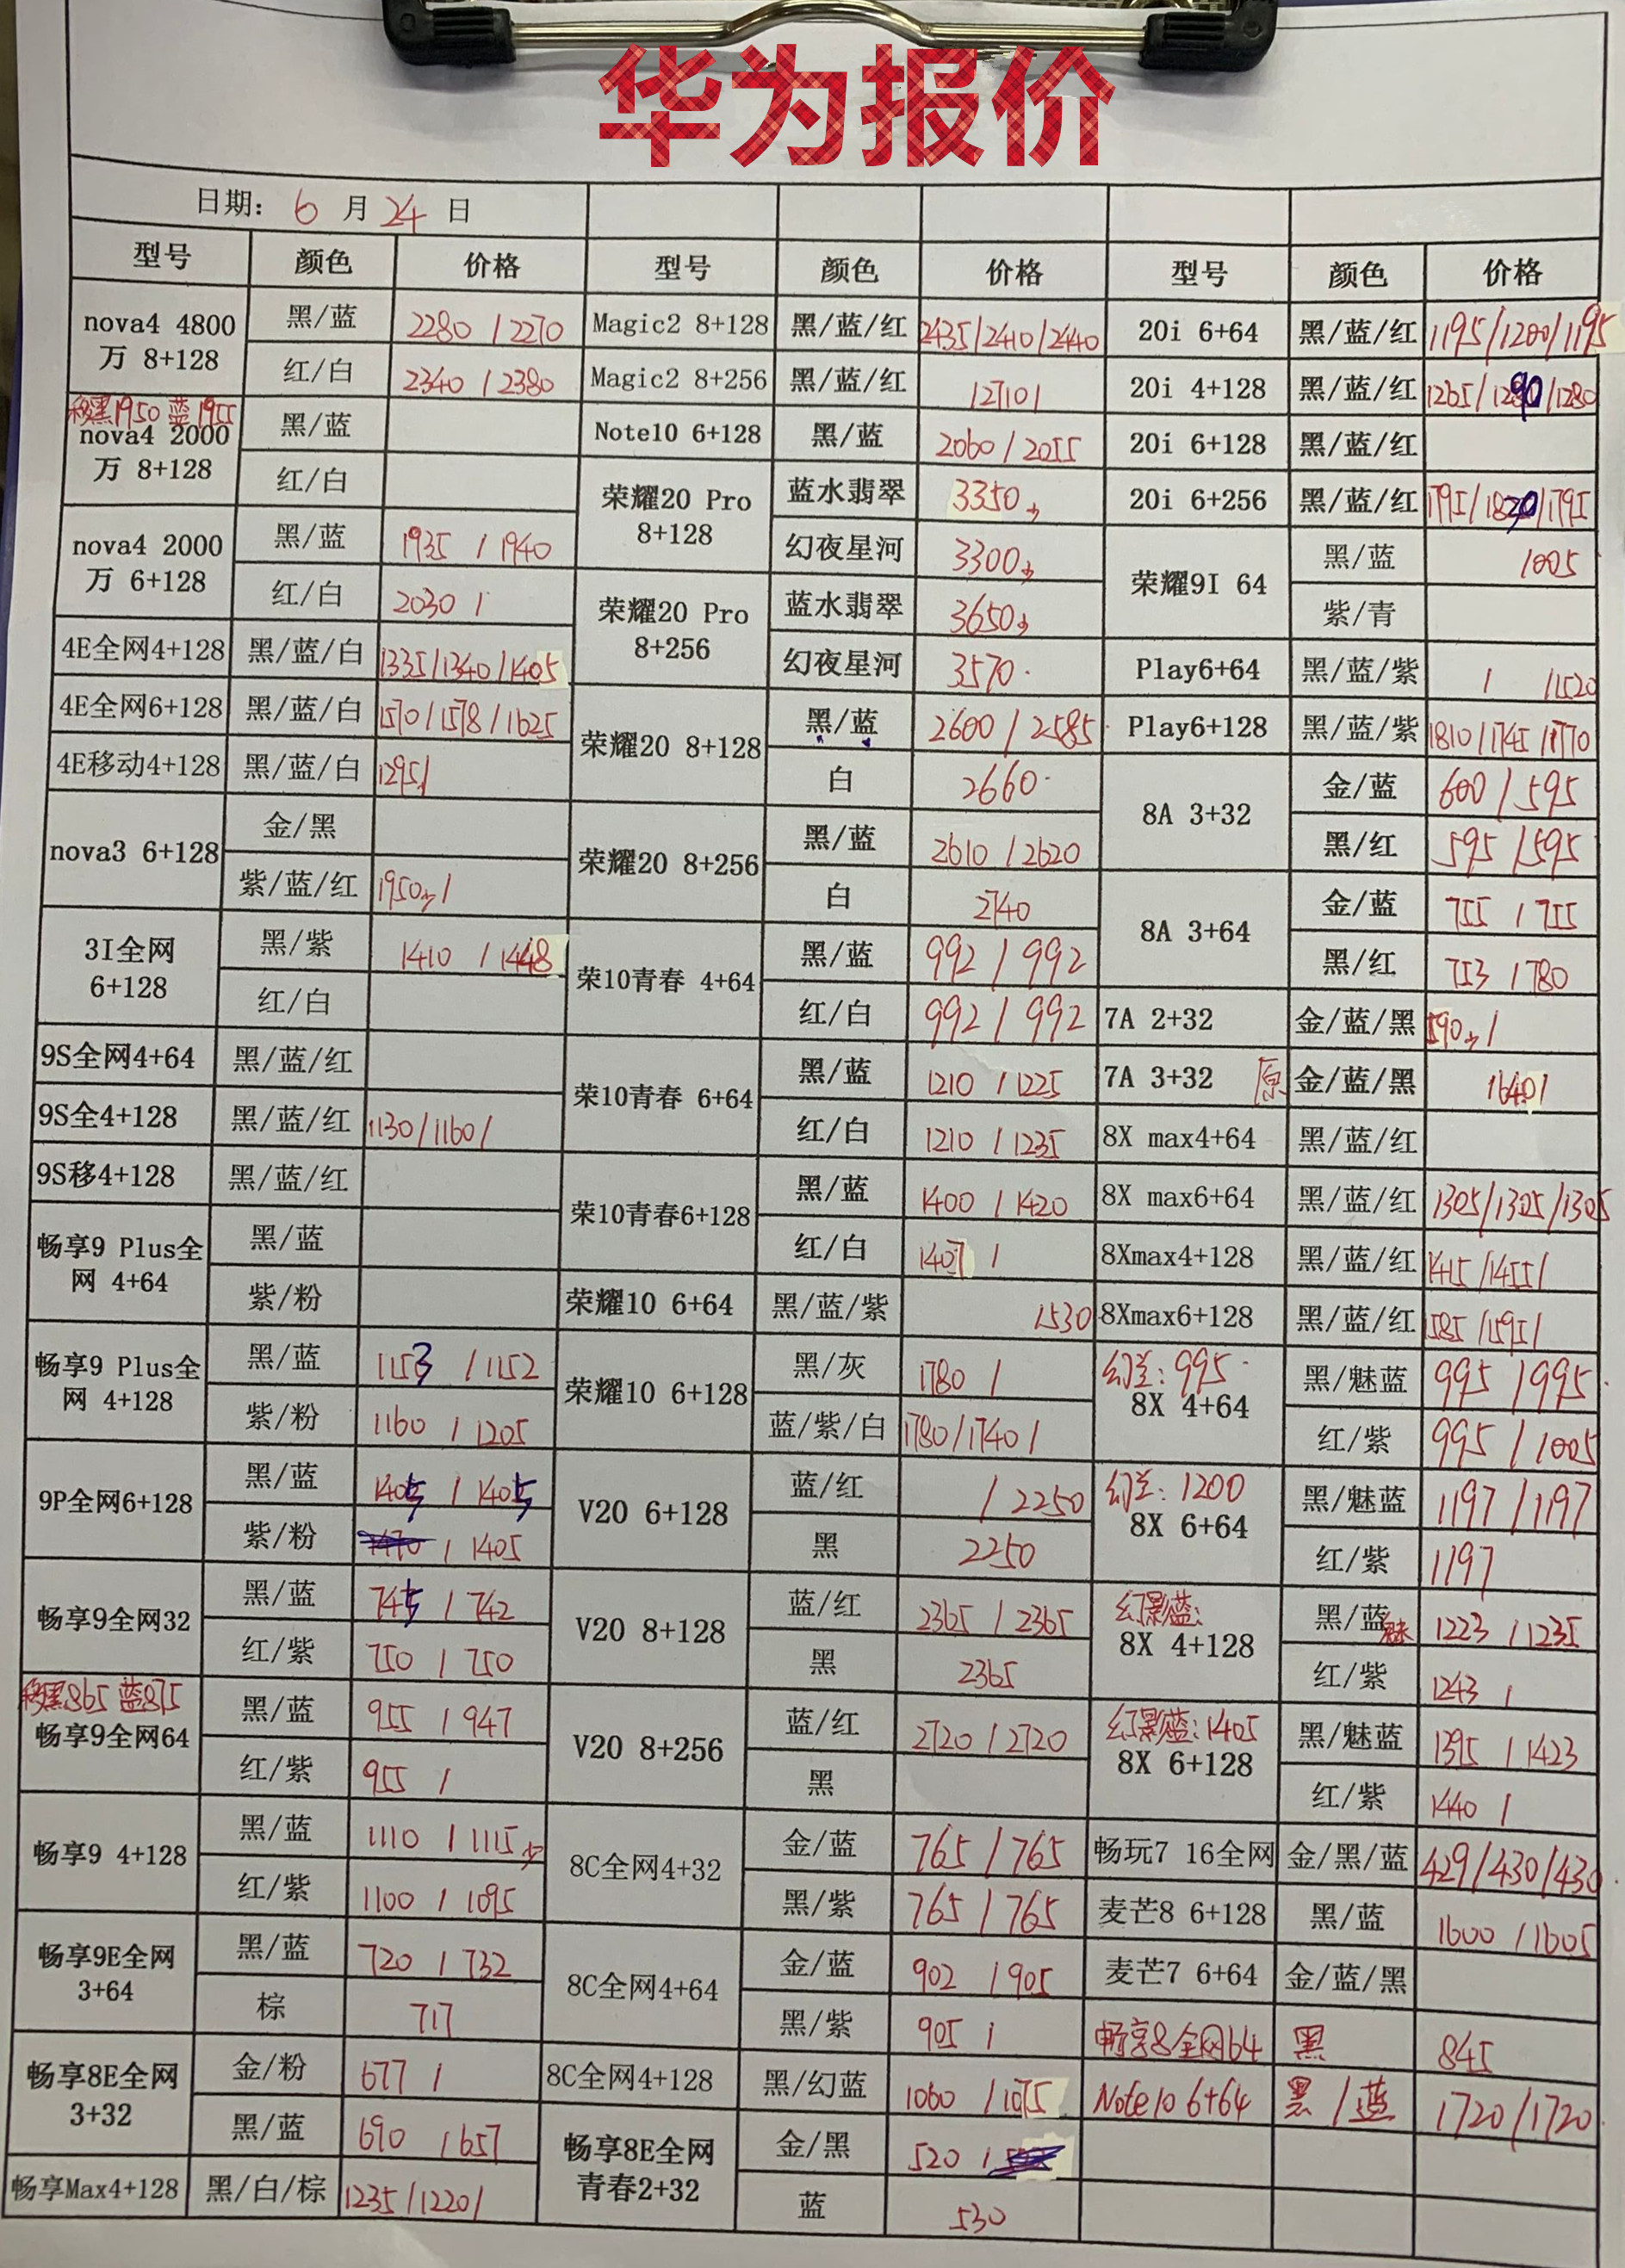 华为报价
日期: 6 月 24 日
型号 颜色 价格 型号 颜色 价格 型号 颜色 价格
nova4 4800万 8+128 黑/蓝 2280 / 2270
红/白 2340 / 2380
移黑1950 蓝1955
nova4 2000万 8+128 黑/蓝
红/白
nova4 2000万 6+128 黑/蓝 1935 / 1940
红/白 2030 /
4E全网4+128 黑/蓝/白 1335/1340/1405
4E全网6+128 黑/蓝/白 1570/1578/1625
4E移动4+128 黑/蓝/白 1295/
nova3 6+128 金/黑
紫/蓝/红 1950少/
3I全网 6+128 黑/紫 1410 / 1448
红/白
9S全网4+64 黑/蓝/红
9S全4+128 黑/蓝/红 1130/1160/
9S移4+128 黑/蓝/红
畅享9 Plus全网 4+64 黑/蓝
紫/粉
畅享9 Plus全网 4+128 黑/蓝 1153 / 1152
紫/粉 1160 / 1205
9P全网6+128 黑/蓝 1405 / 1405
紫/粉 / 1405
畅享9全网32 黑/蓝 745 / 742
红/紫 750 / 750
移黑865 蓝875
畅享9全网64 黑/蓝 955 / 947
红/紫 955 /
畅享9 4+128 黑/蓝 1110 / 1115少
红/紫 1100 / 1095
畅享9E全网 3+64 黑/蓝 720 / 732
棕 717
畅享8E全网 3+32 金/粉 677 /
黑/蓝 690 / 657
畅享Max4+128 黑/白/棕 1235/1220/
Magic2 8+128 黑/蓝/红 2435/2410/2440
Magic2 8+256 黑/蓝/红 /2710/
Note10 6+128 黑/蓝 2060 / 2055
荣耀20 Pro 8+128 蓝水翡翠 3350少
幻夜星河 3300少
荣耀20 Pro 8+256 蓝水翡翠 3650少
幻夜星河 3570
荣耀20 8+128 黑/蓝 2600 / 2585
白 2660
荣耀20 8+256 黑/蓝 2610 / 2620
白 2740
荣10青春 4+64 黑/蓝 992 / 992
红/白 992 / 992
荣10青春 6+64 黑/蓝 1210 / 1225
红/白 1210 / 1235
荣10青春6+128 黑/蓝 1400 / 1420
红/白 1407 /
荣耀10 6+64 黑/蓝/紫 1530
荣耀10 6+128 黑/灰 1780 /
蓝/紫/白 1780/1740/
V20 6+128 蓝/红 / 2250
黑 2250
V20 8+128 蓝/红 2365 / 2365
黑 2365
V20 8+256 蓝/红 2720 / 2720
黑
8C全网4+32 金/蓝 765 / 765
黑/紫 765 / 765
8C全网4+64 金/蓝 902 / 905
黑/紫 905 /
8C全网4+128 黑/幻蓝 1060 / 1075
畅享8E全网青春2+32 金/黑 520 /
蓝 530
20i 6+64 黑/蓝/红 1195/1200/1195
20i 4+128 黑/蓝/红 1265/1290/1280
20i 6+128 黑/蓝/红
20i 6+256 黑/蓝/红 1795/1820/1795
荣耀9I 64 黑/蓝 1005
紫/青
Play6+64 黑/蓝/紫 / /1520
Play6+128 黑/蓝/紫 1810/1745/1770
8A 3+32 金/蓝 600 / 595
黑/红 595 / 595
8A 3+64 金/蓝 755 / 755
黑/红 753 / 780
7A 2+32 金/蓝/黑 590少/
7A 3+32 原 金/蓝/黑 /640/
8X max4+64 黑/蓝/红
8X max6+64 黑/蓝/红 1305/1305/1305
8Xmax4+128 黑/蓝/红 1415/1455/
8Xmax6+128 黑/蓝/红 1585/1595/
995
8X 4+64 黑/魅蓝 995 / 995
红/紫 995 / 1005
1200
8X 6+64 黑/魅蓝 1197 / 1197
红/紫 1197
幻影蓝:
8X 4+128 黑/魅蓝 1223 / 1235
红/紫 1243 /
幻影蓝:1405
8X 6+128 黑/魅蓝 1395 / 1423
红/紫 1440 /
畅玩7 16全网 金/黑/蓝 429/430/430
麦芒8 6+128 黑/蓝 1600 / 1605
麦芒7 6+64 金/蓝/黑
畅享8全网64 黑 845
Note10 6+64 黑/蓝 1720/1720